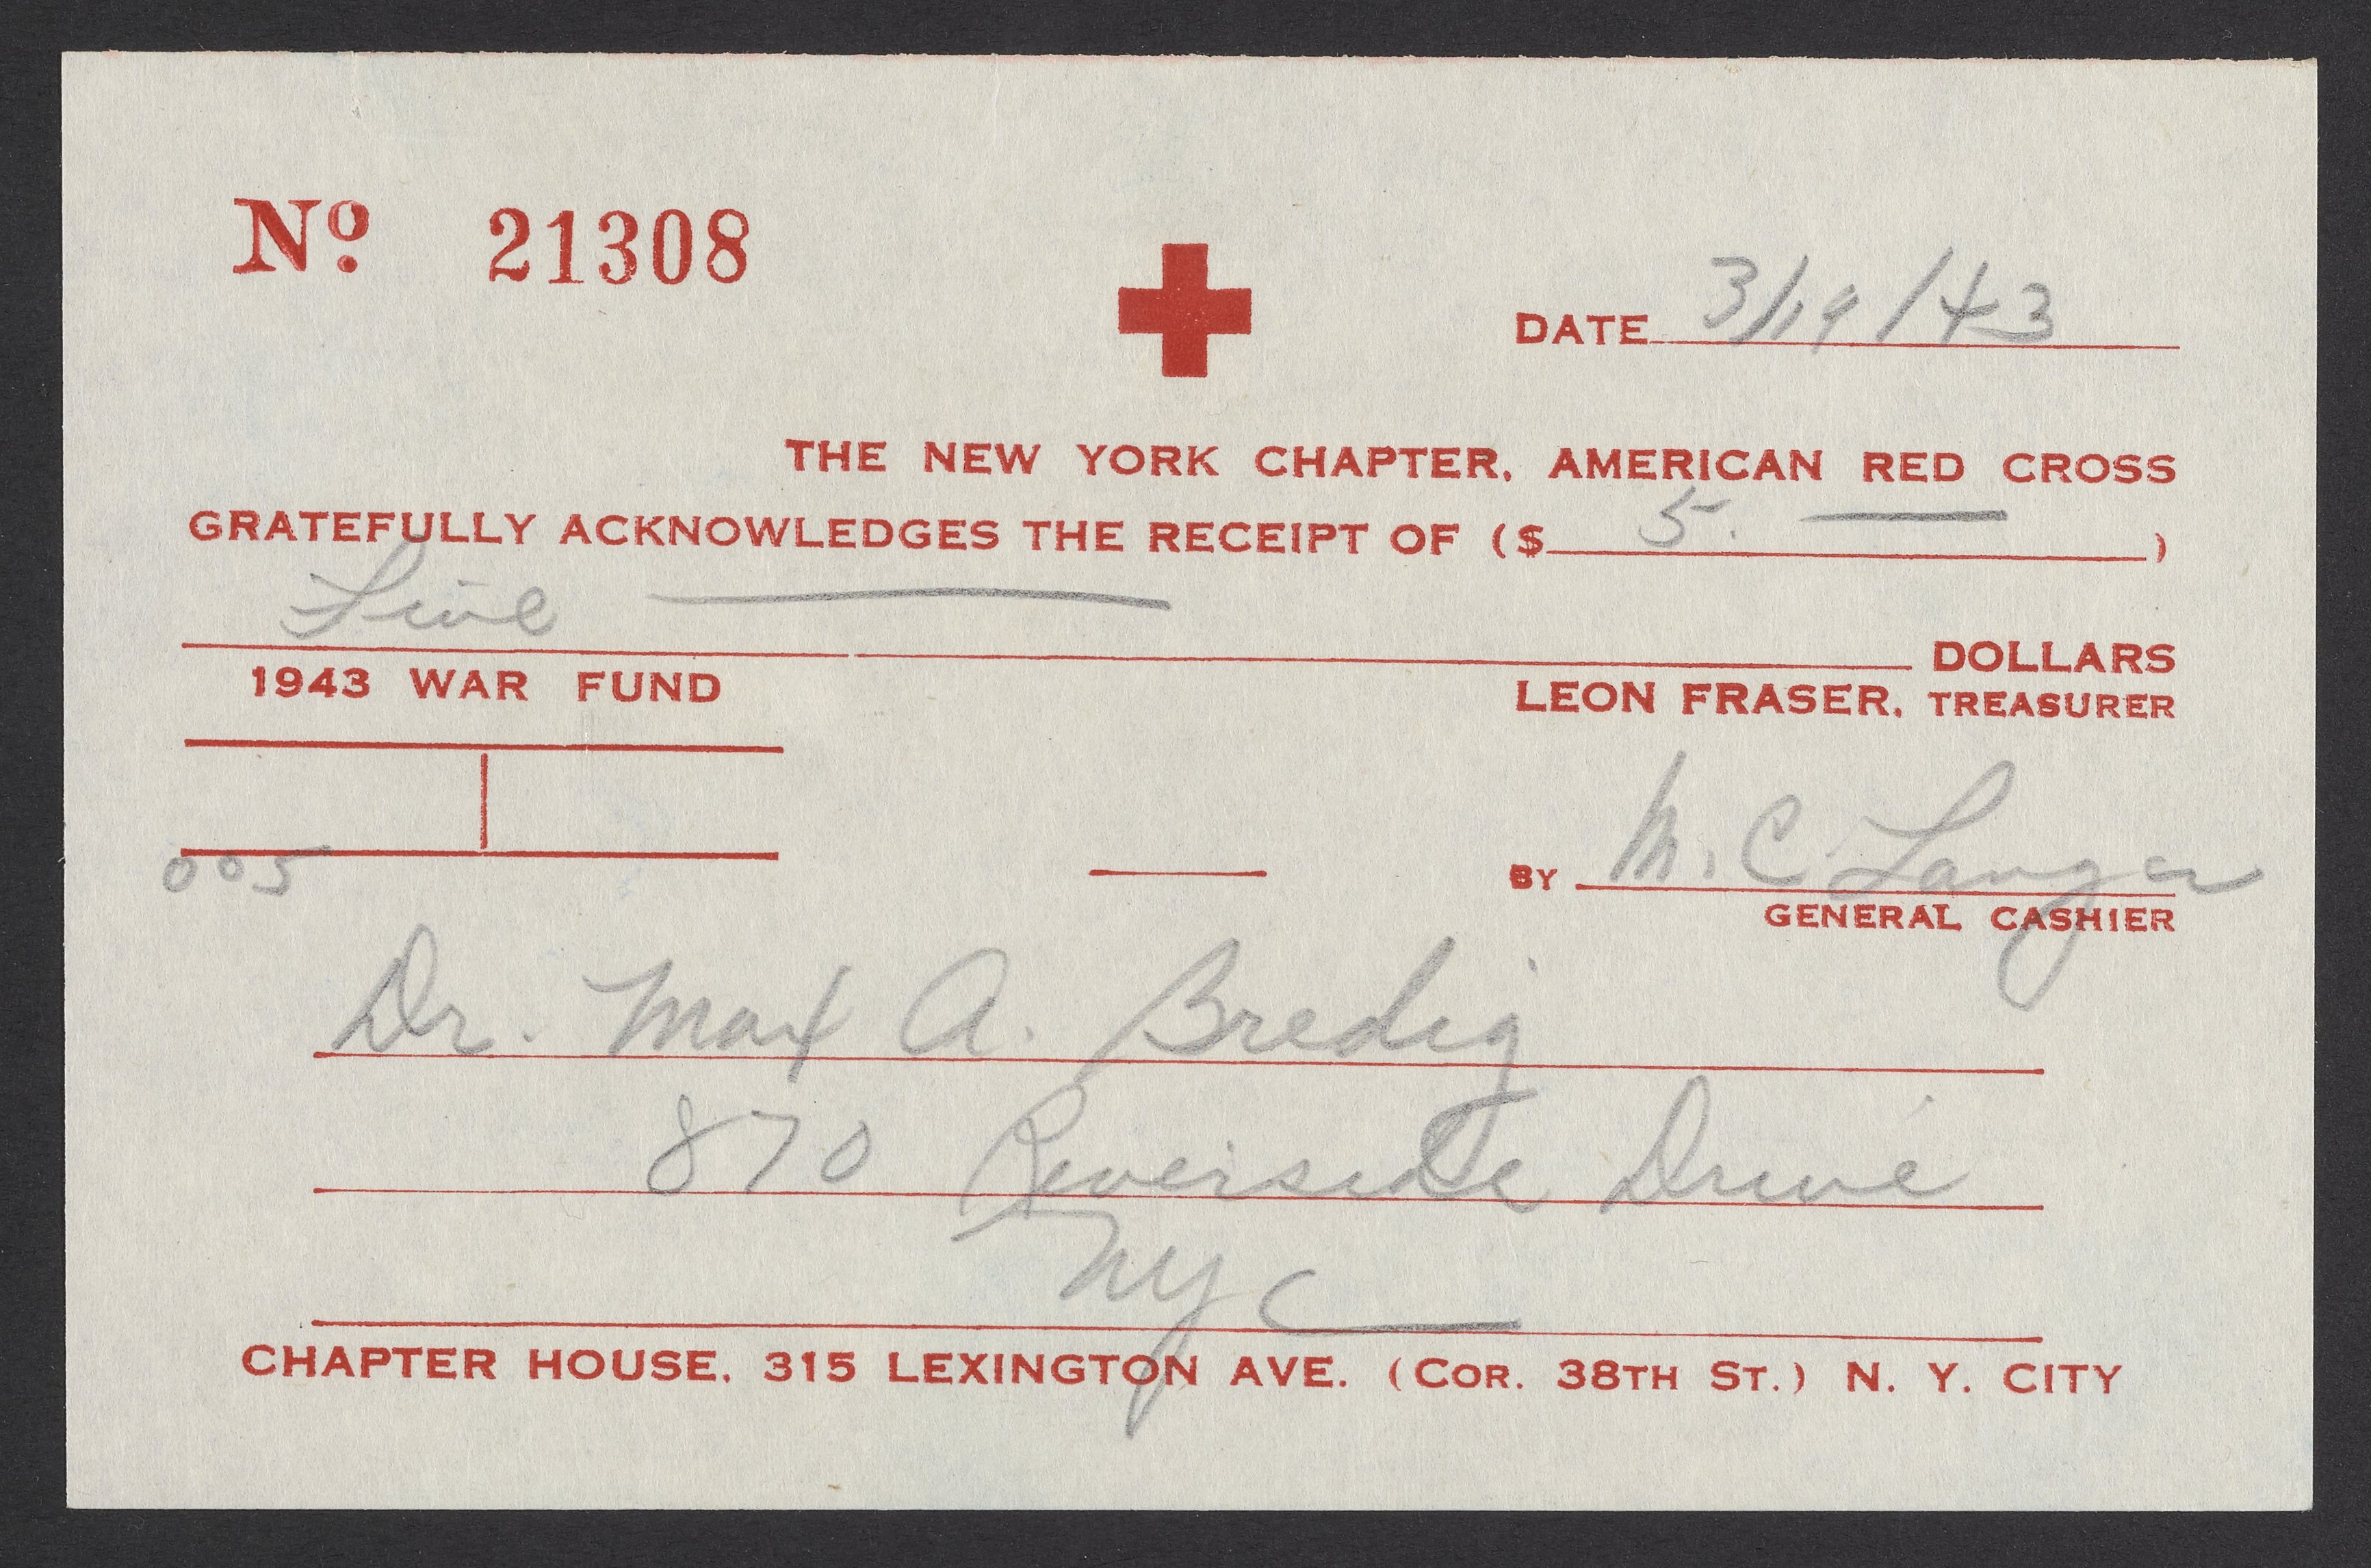 No. 21308
DATE 3/19/43
THE NEW YORK CHAPTER, AMERICAN RED CROSS
GRATEFULLY ACKNOWLEDGES THE RECEIPT OF ($ 5. )
Five DOLLARS
1943 WAR FUND
LEON FRASER, TREASURER
005
BY M. C Langer
GENERAL CASHIER
Dr. Max A. Bredig
870 Riverside Drive
NYC
CHAPTER HOUSE, 315 LEXINGTON AVE. (COR. 38TH ST.) N. Y. CITY